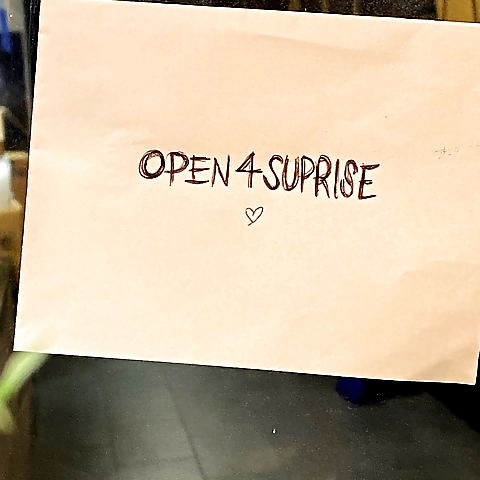 OPEN 4 SUPRISE